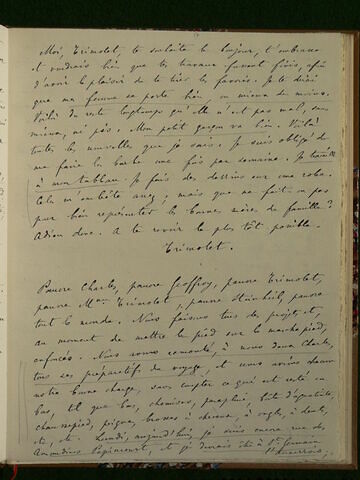 Moi, Trimolet, te souhaite le bonjour, t'embrasse
et voudrais bien que tes travaux fussent finis, afin
d'avoir le plaisir de te tirer les favoris. Je te dirai
que ma femme se porte bien, ou mieux du moins.
Voilà du reste longtemps qu'elle n'est pas mal, sans
mieux, ni pis. Mon petit garçon va bien. Voilà
toutes les nouvelles que je sais. Je suis obligé de
me faire la barbe une fois par semaine. Je travaille
à mon tableau. Je fais des dessins sur une robe.
Cela m'embête assez; mais que ne fait-on pas
pour bien représenter les bonnes mères de famille?
Adieu donc. A te revoir le plus tôt possible.
Trimolet.
Pauvre Charles, pauvre Geoffroy, pauvre Trimolet,
pauvre Mme Trimolet, pauvre Steinheil, pauvre
tout le monde. Nous faisions tous des projets et,
au moment de mettre le pied sur le marchepied,
enfoncés. Nous avons remonté, à nous deux Charles,
tous ces préparatifs de voyage, et nous avions chacun
notre bonne charge, sans compter ce qui est resté en
bas, tel que bas, chemises, parapluie, boîte d'aquarelle,
chaussepied, peignes, brosses à cheveux, à ongles, à dents,
etc, etc. Lundi, aujourd'hui, je suis encore rue des
Amandiers Popincourt, et je devrais être à St Germain
l'Auxerrois